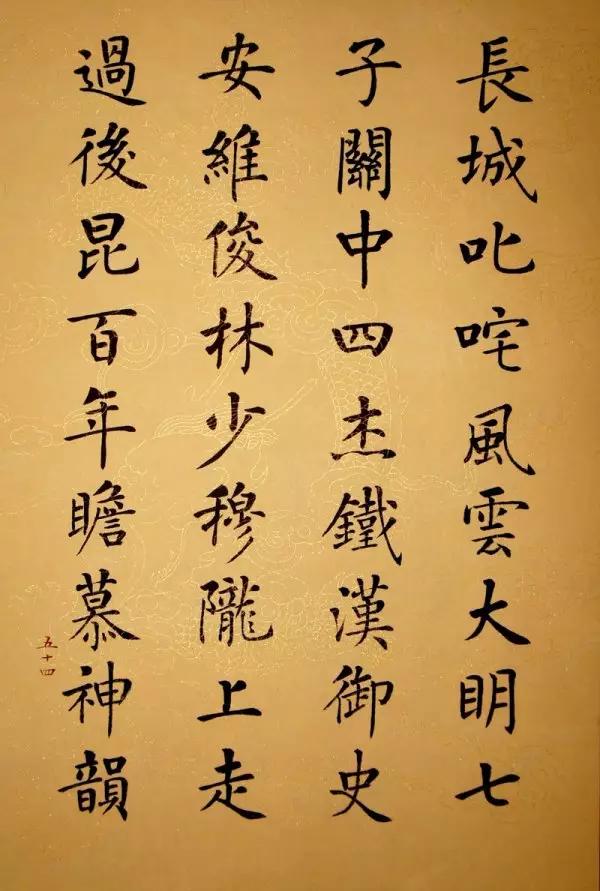 長城叱咤風雲大明七
子關中四杰鐵漢御史
安維俊林少穆隴上走
過後昆百年瞻慕神韻
五十四